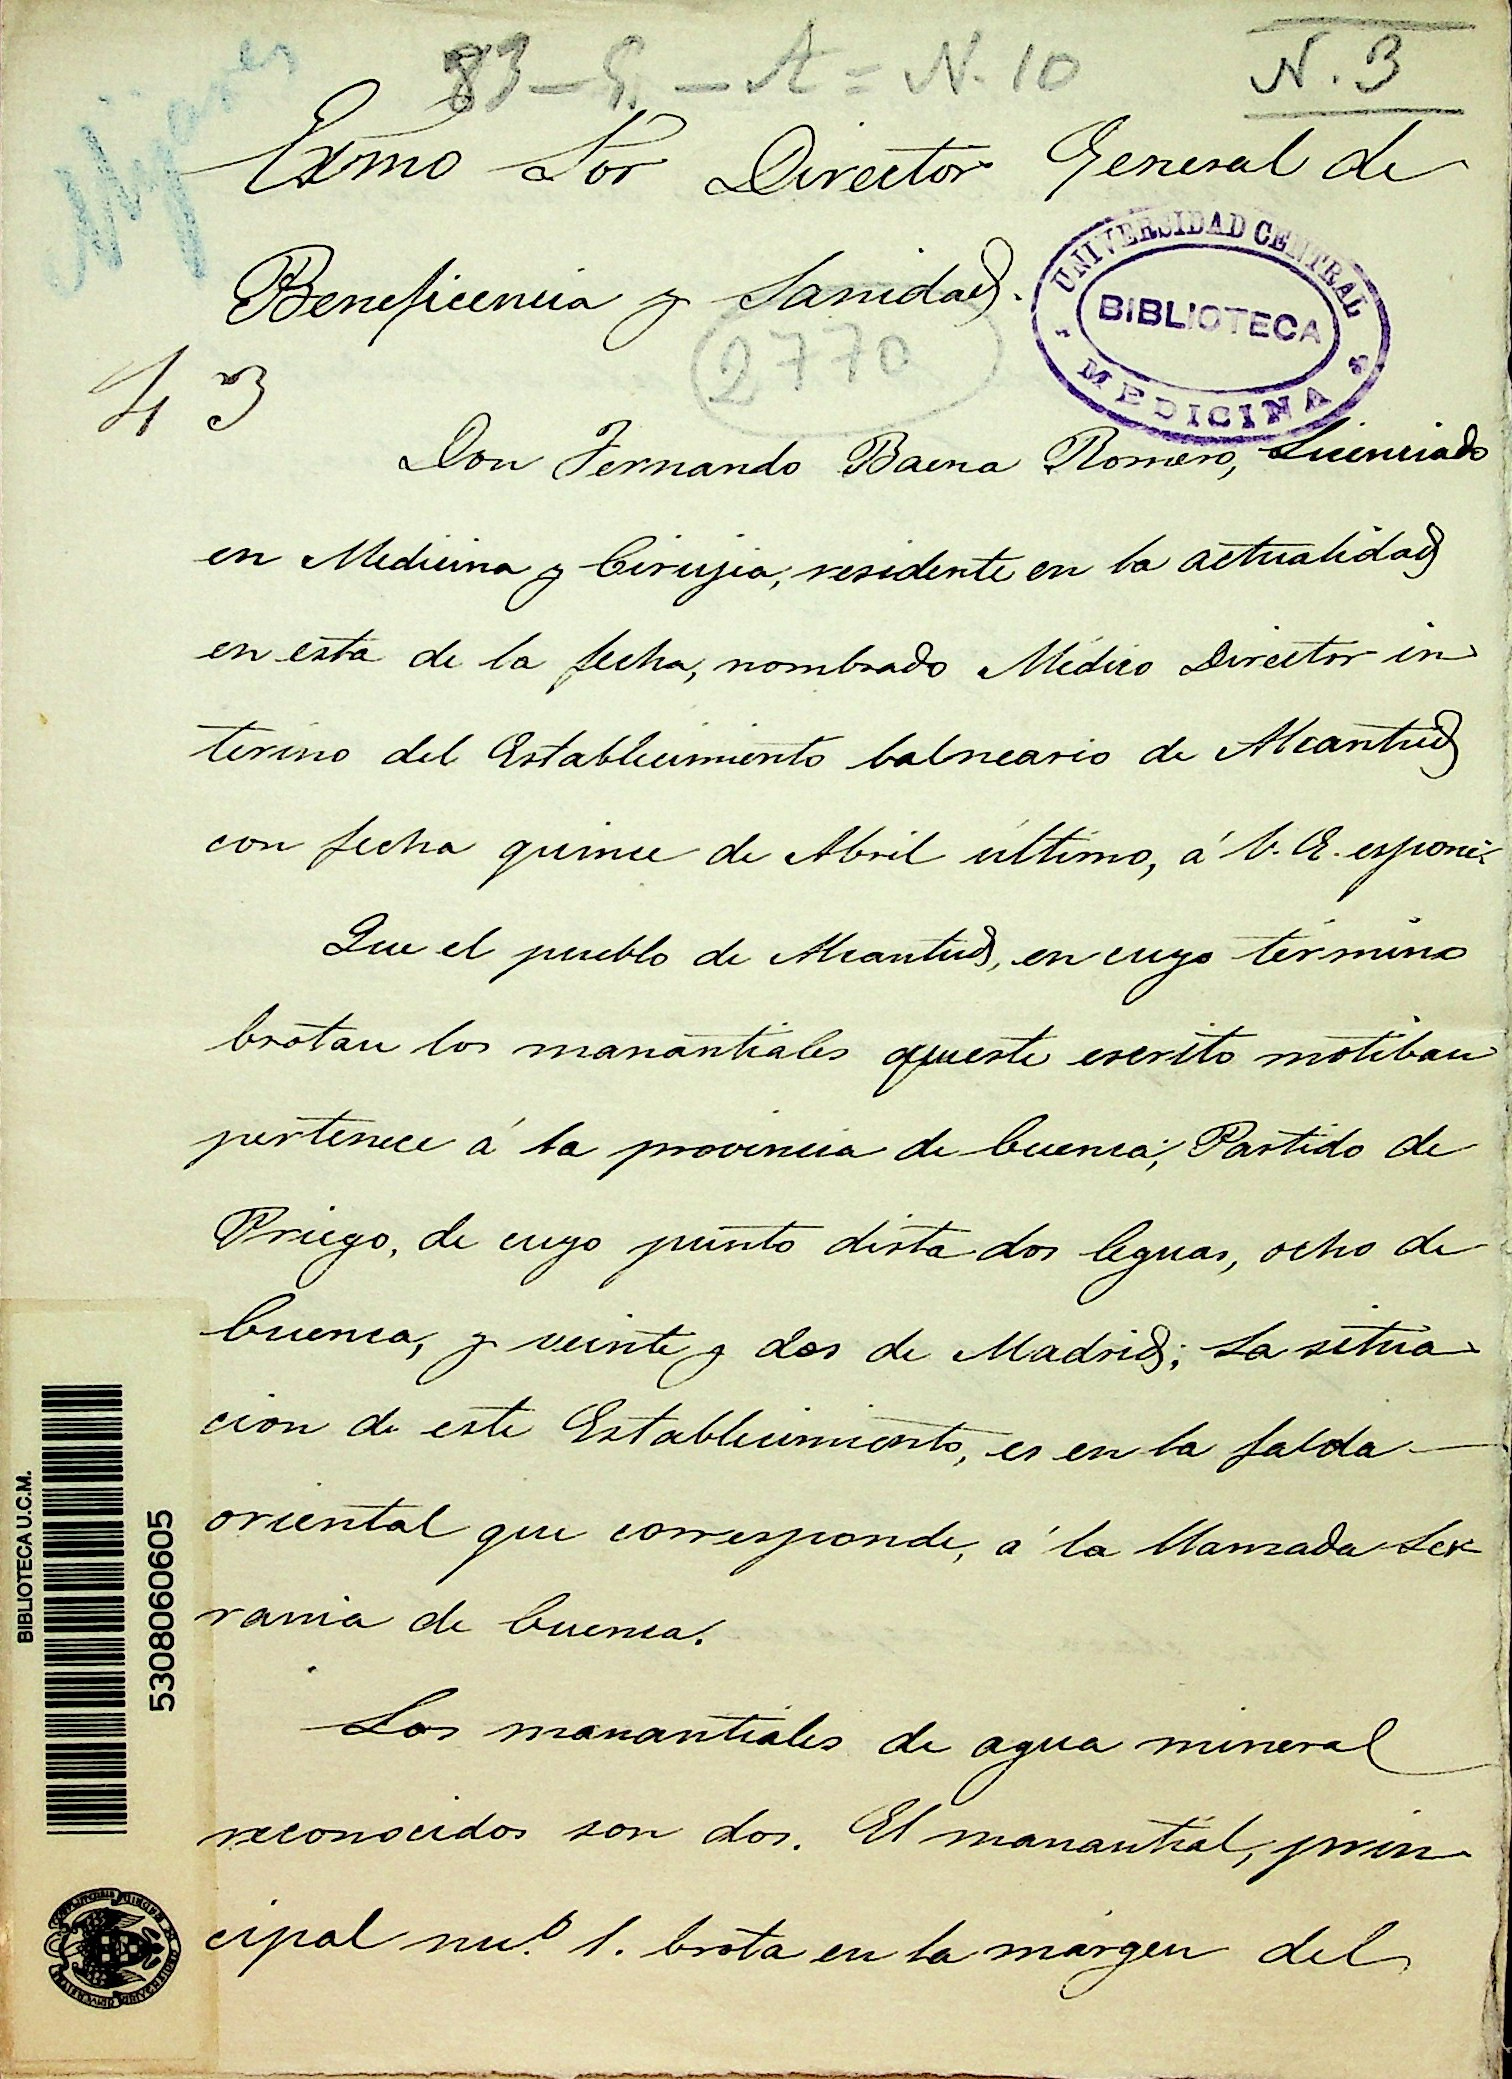 83 - - A = N. 10
N. 3
Exmo Sor Director General de
Beneficencia y Sanidad.
2770
UNIVERSIDAD CENTRAL
BIBLIOTECA
MEDICINA
43
Don Fernando Baena Romero, Licenciado
en Medicina y Cirujia, residente en la actualidad
en esta de la fecha, nombrado Médico Director in
terino del Establecimiento balneario de Alcantud
con fecha quince de Abril último, á V. E. espone:
Que el pueblo de Alcantud, en cuyo término
brotan los manantiales queste escrito motiban
pertenece á la provincia de Cuenca; Partido de
Priego, de cuyo punto dista dos leguas, ocho de
Cuenca, y veinte y dos de Madrid; La situa
cion de este Establecimiento, es en la falda —
oriental que corresponde, á la llamada Ser
rania de Cuenca.
Los manantiales de agua mineral
reconocidos son dos. El manantial, prin
cipal nu.º 1. brota en la márgen del
BIBLIOTECA U.C.M.
5308060605